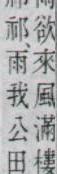 雨欲來風滿樓
祁祁、雨我公田